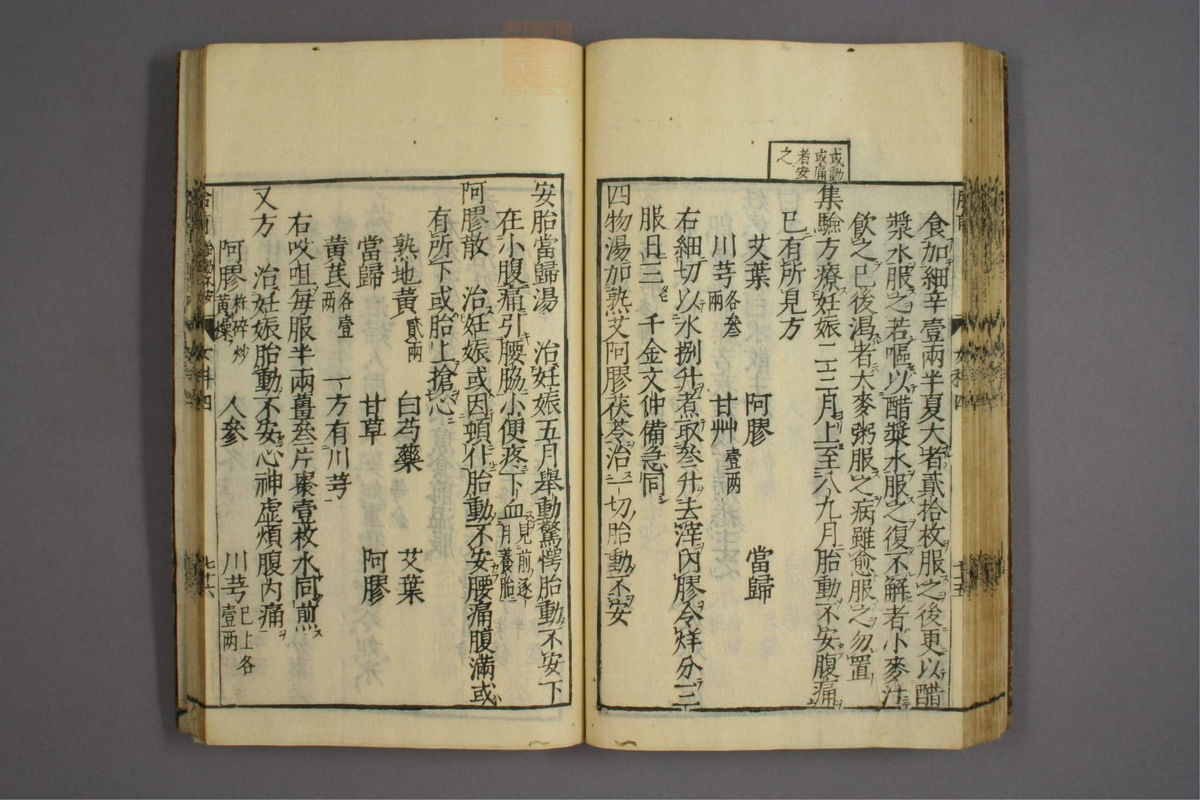 食加細辛壹兩半夏大者貳拾枚服之後更以醋
漿水服之若嘔以醋漿水服之復不解者小麥汁
飲之已後渴者大麥粥服之病雖愈服之勿置
或動
或痛
者安
之
集驗方療妊娠二三月上至八九月胎動不安腹痛
已有所見方
艾葉 阿膠 當歸
川芎各叄兩 甘艸壹兩
右細切以水捌升煮取叄升去滓內膠令烊分三
服日三 千金文仲備急同
四物湯加熟艾阿膠茯苓治一切胎動不安
安胎當歸湯 治妊娠五月舉動驚愕胎動不安下
在小腹痛引腰脇小便疼下血見前逐月養胎
阿膠散 治妊娠或因頓仆胎動不安腰痛腹滿或
有所下或胎上搶心
熟地黃貳兩 白芍藥 艾葉
當歸 甘草 阿膠
黃芪各壹兩 一方有川芎
右㕮咀每服半兩薑叄片棗壹枚水同煎
又方 治妊娠胎動不安心神虛煩腹內痛
阿膠杵碎炒黃燥 人參 川芎已上各壹兩
女科四